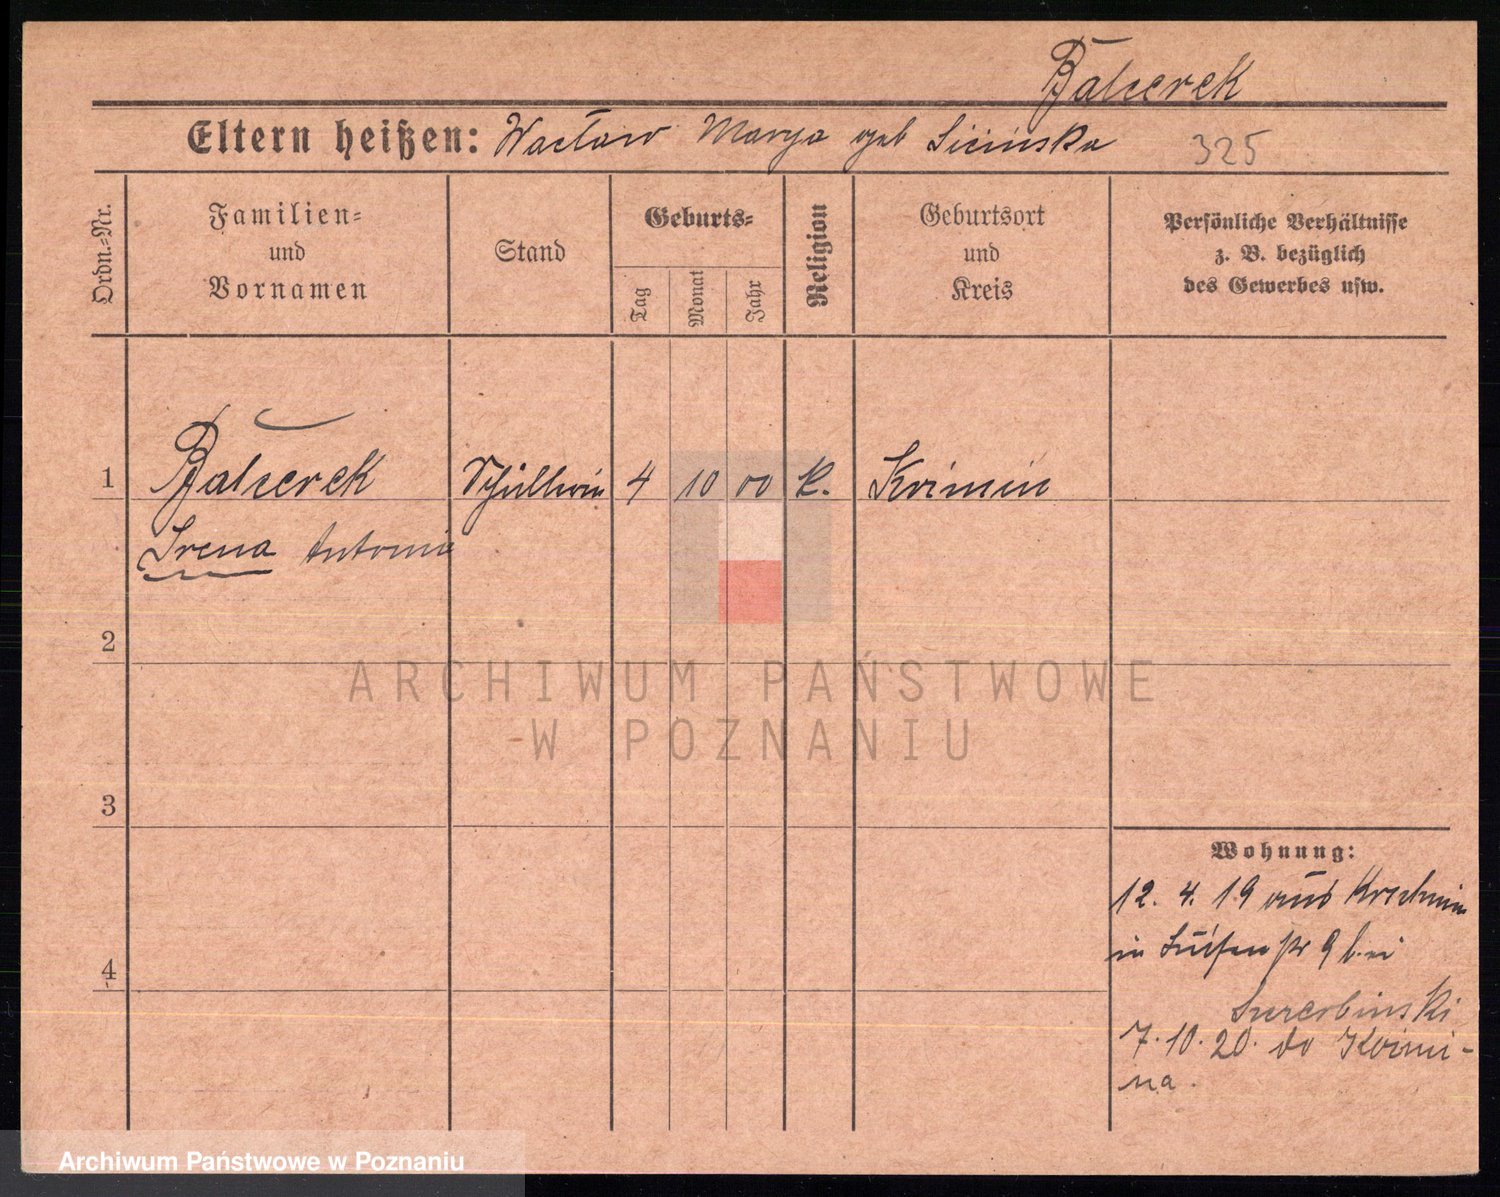 Balcerek
Eltern heißen: Wacław Marya geb Sicinska 325
Ordn.-Nr.
Familien-
und
Vornamen
Stand
Geburts-
Tag
Monat
Jahr
Religion
Geburtsort
und
Kreis
Persönliche Verhältnisse
z. B. bezüglich
des Gewerbes usw.
1 Balcerek Schülerin 4 10 00 k. Krimin
Irena Antonia
2
ARCHIWUM PAŃSTWOWE
W POZNANIU
3
Wohnung:
12. 4. 19 aus
in Luisenstr 9 bei
4
7. 10. 20. do Koźmi-
na.
Archiwum Państwowe w Poznaniu